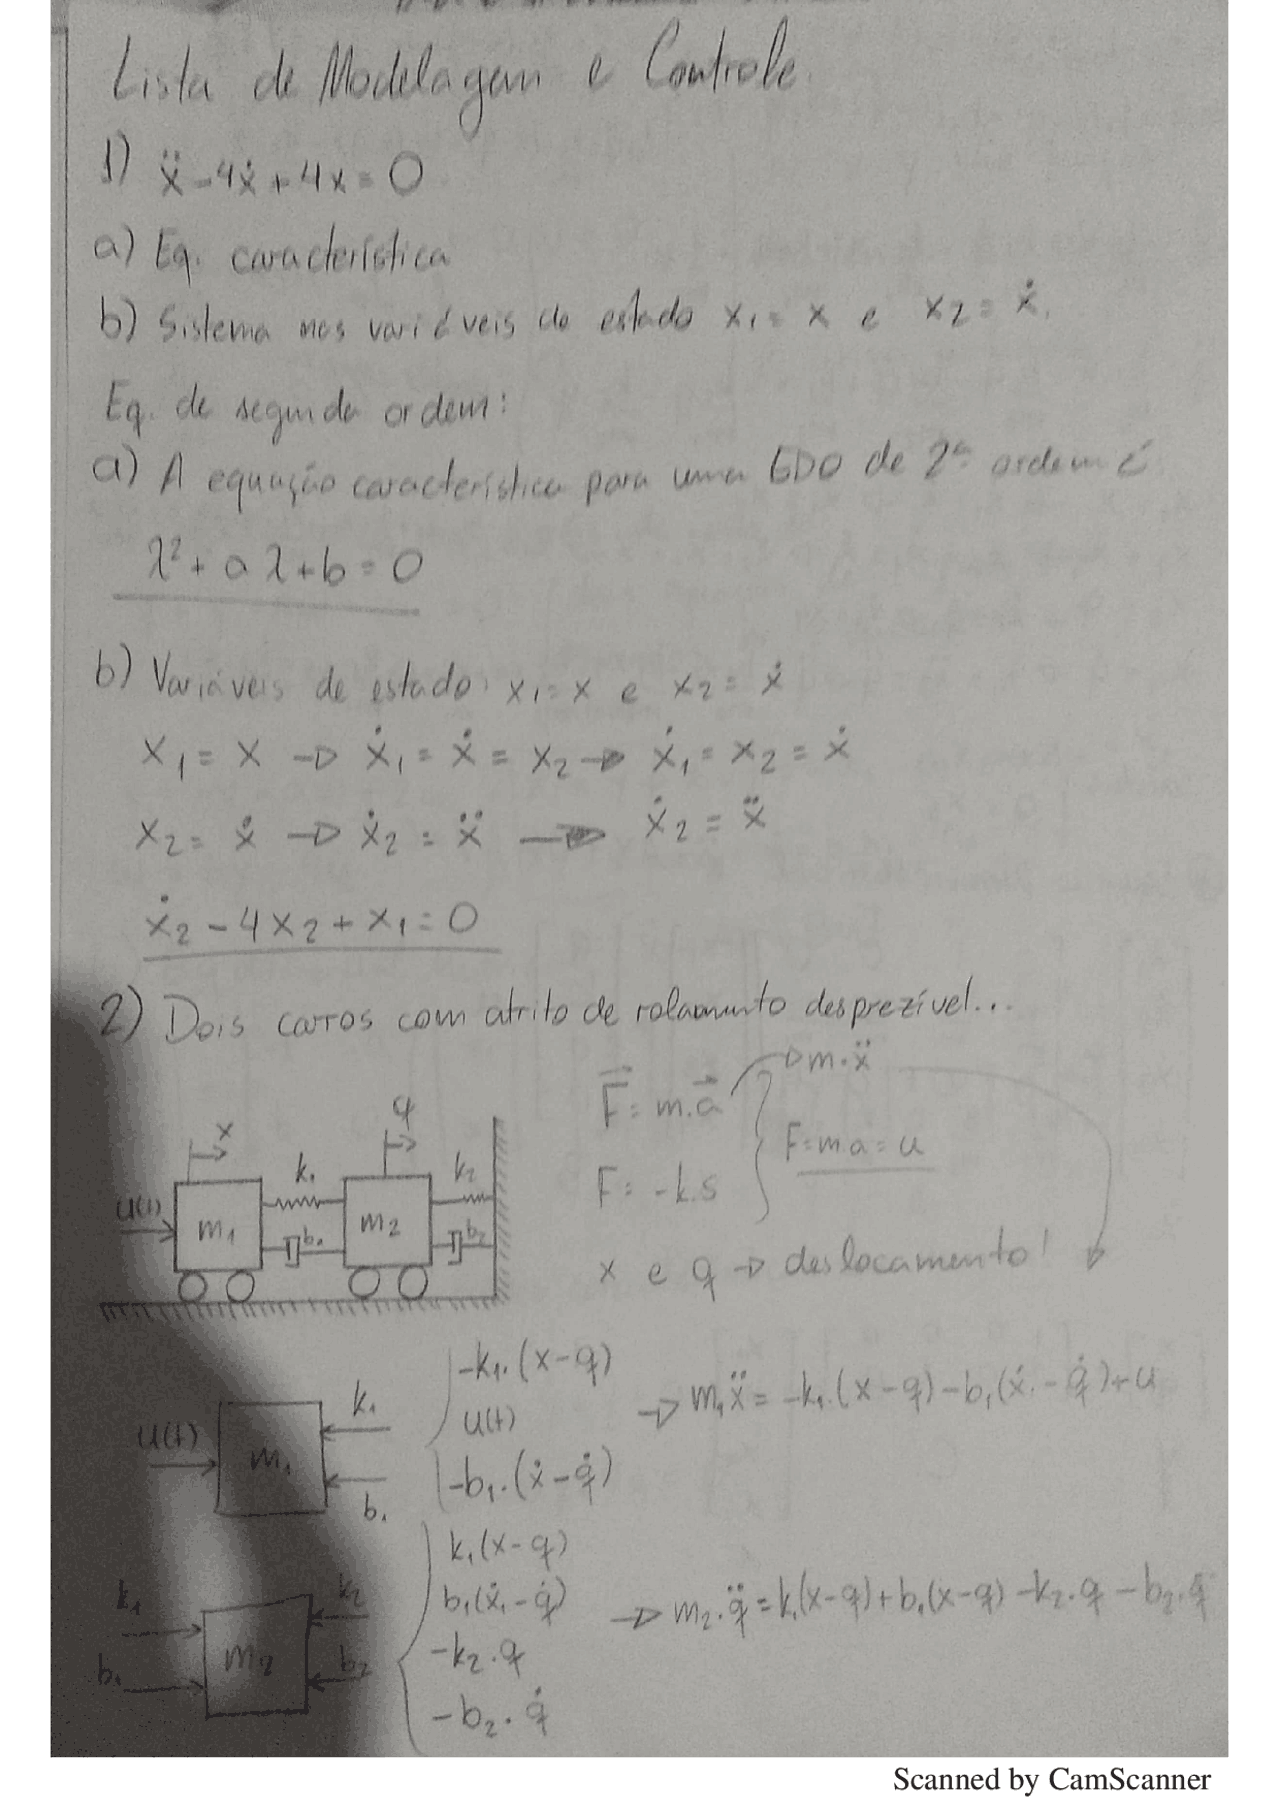 Lista de Modelagem e Controle.
1) ẍ - 4ẋ + 4x = 0
a) Eq. característica
b) Sistema nas variáveis de estado x₁ = x e x₂ = ẋ.
Eq. de segunda ordem:
a) A equação característica para uma EDO de 2ª ordem é
λ² + a λ + b = 0
b) Variáveis de estado: x₁ = x e x₂ = ẋ
x₁ = x → ẋ₁ = ẋ = x₂ → ẋ₁ = x₂ = ẋ
x₂ = ẋ → ẋ₂ = ẍ → ẋ₂ = ẍ
ẋ₂ - 4x₂ + x₁ = 0
2) Dois carros com atrito de rolamento desprezível...
F = m.a → m.ẍ
F = m a = u
F = -k.s
x e q → deslocamento!
x
q
u(t)
m₁
k₁
b₁
m₂
k₂
b₂
u(t)
m₁
k₁
b₁
-k₁.(x-q)
u(t)
-b₁.(ẋ-q̇)
→ m₁ẍ = -k₁.(x-q) - b₁(ẋ - q̇) + u
k₁
b₁
m₂
k₂
b₂
k₁(x-q)
b₁(ẋ₁-q̇)
-k₂.q
-b₂.q̇
→ m₂.q̈ = k₁(x-q) + b₁(x-q) - k₂.q - b₂.q̇
Scanned by CamScanner